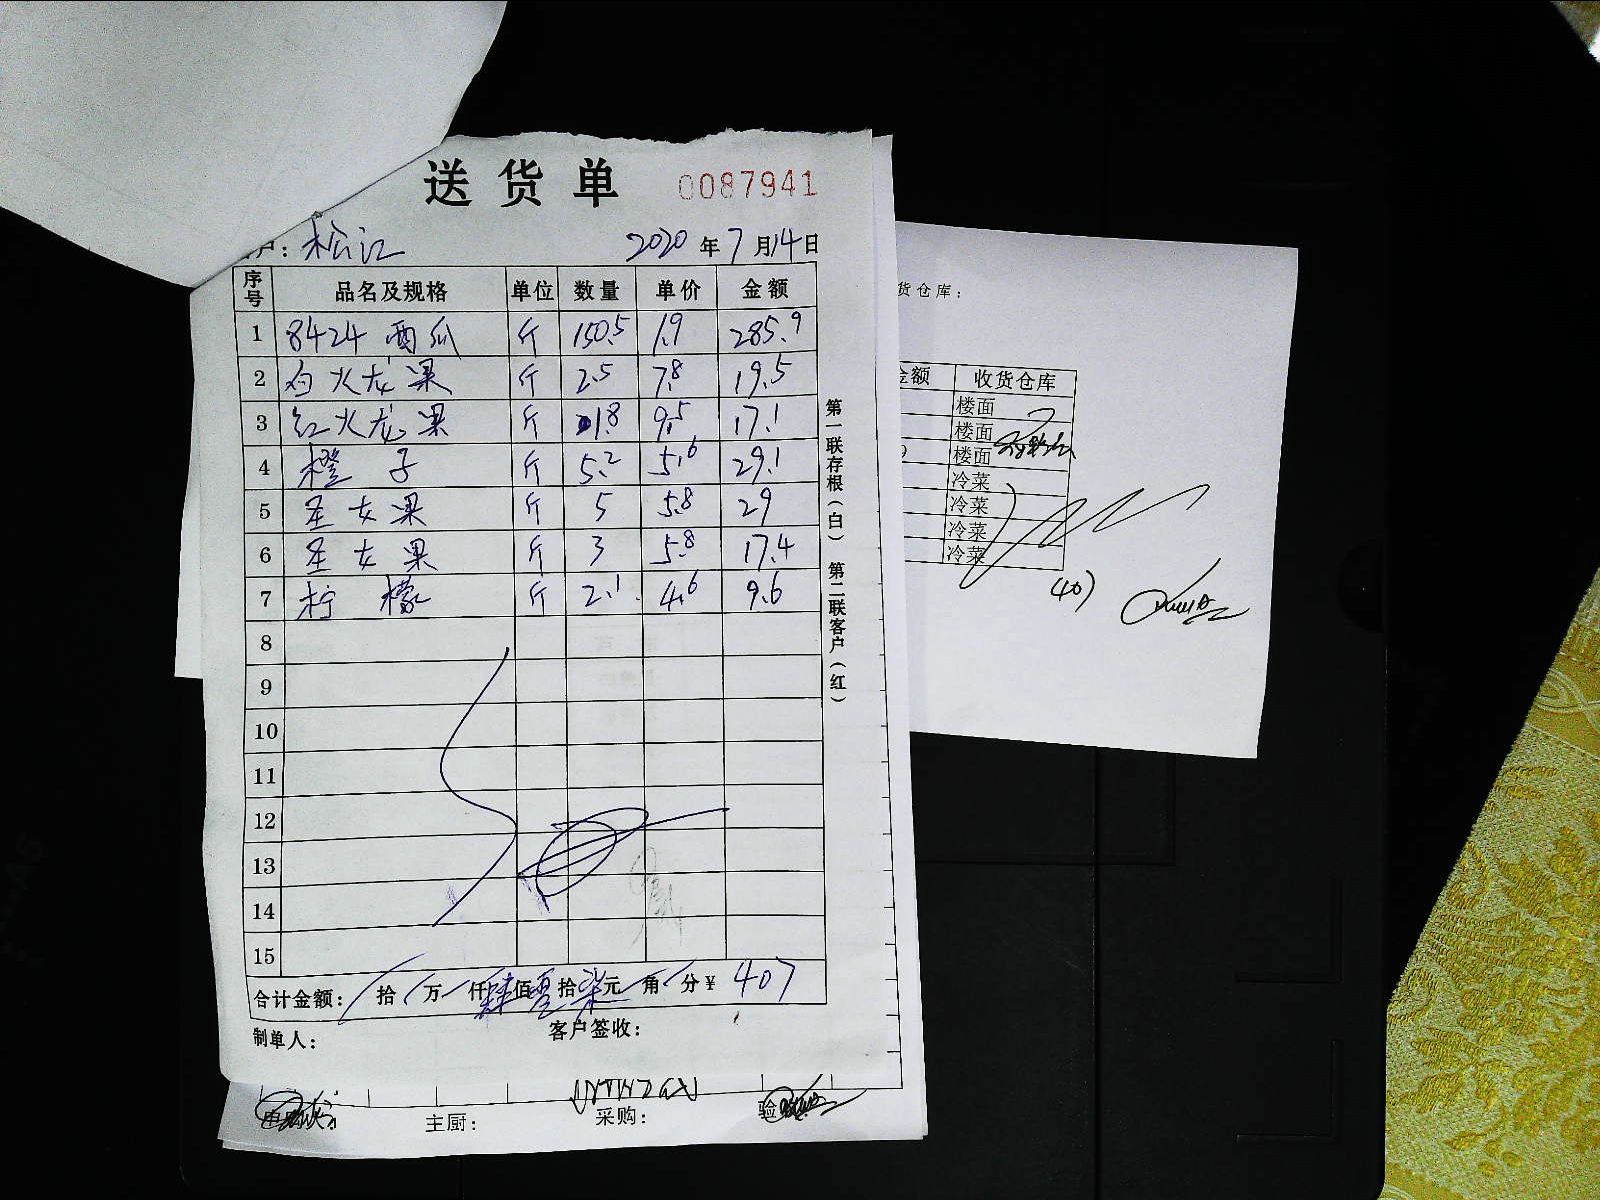 送货单 0087941
户: 松江 2020年7月14日
序号 品名及规格 单位 数量 单价 金额
1 8424 西瓜 斤 150.5 1.9 285.9
2 白火龙果 斤 2.5 7.8 19.5
3 红火龙果 斤 1.8 9.5 17.1
4 橙子 斤 5.2 5.6 29.1
5 圣女果 斤 5 5.8 29
6 圣女果 斤 3 5.8 17.4
7 柠檬 斤 2.1 4.6 9.6
8
9
10
11
12
13
14
15
合计金额: 拾 万 仟 肆佰零拾柒元 角 分 ¥ 407
制单人: 客户签收:
第一联存根(白) 第二联客户(红)
主厨: 采购: 验
货仓库:
金额 收货仓库
楼面
楼面
楼面
冷菜
冷菜
冷菜
冷菜
407